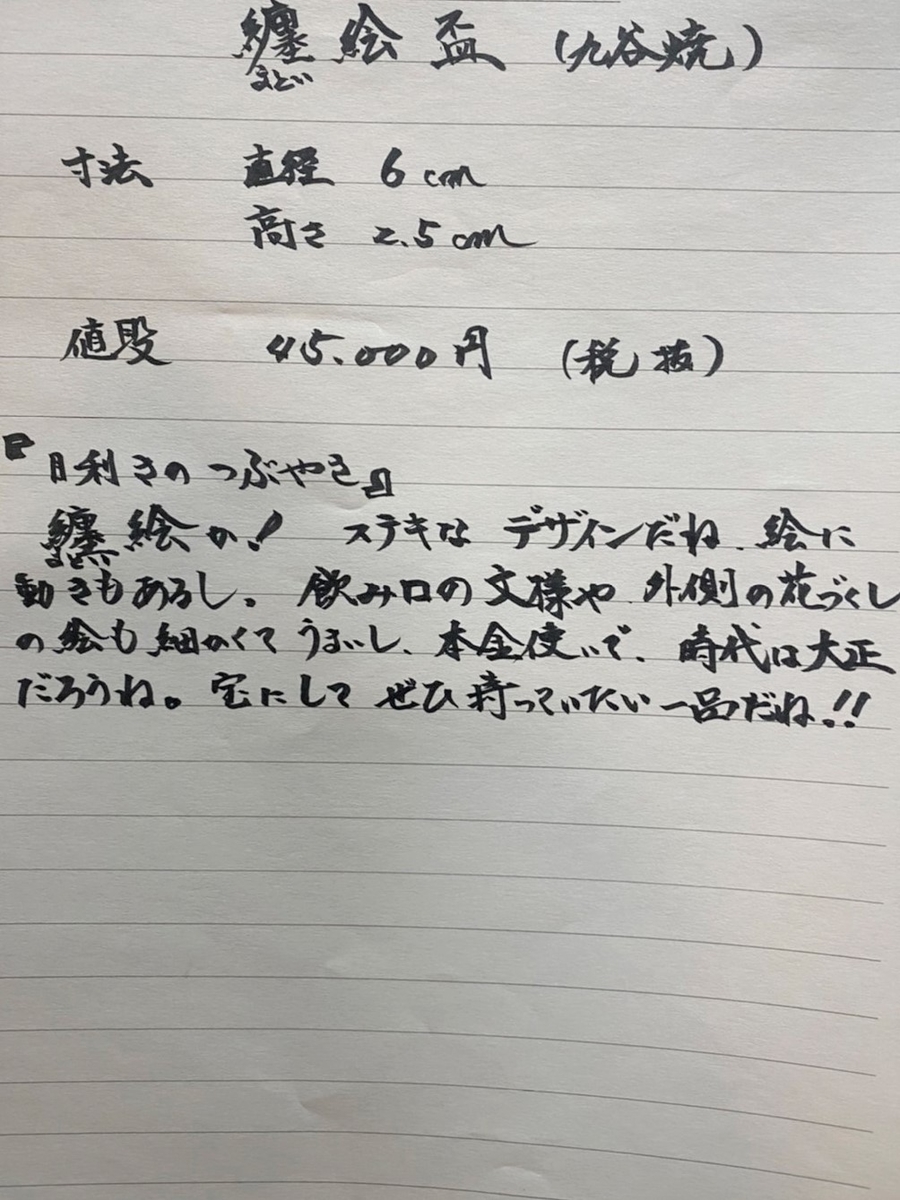 纏絵盃 (九谷焼)
まとい
寸法 直径 6cm
高さ 2.5cm
値段 45.000円 (税抜)
『目利きのつぶやき』
纏絵か! ステキなデザインだね、絵に
まとい
動きもあるし。飲み口の文様や、外側の花づくし
の絵も細かくてうまいし、本金使いで、時代は大正
だろうね。宝にしてぜひ持っていたい一品だね!!